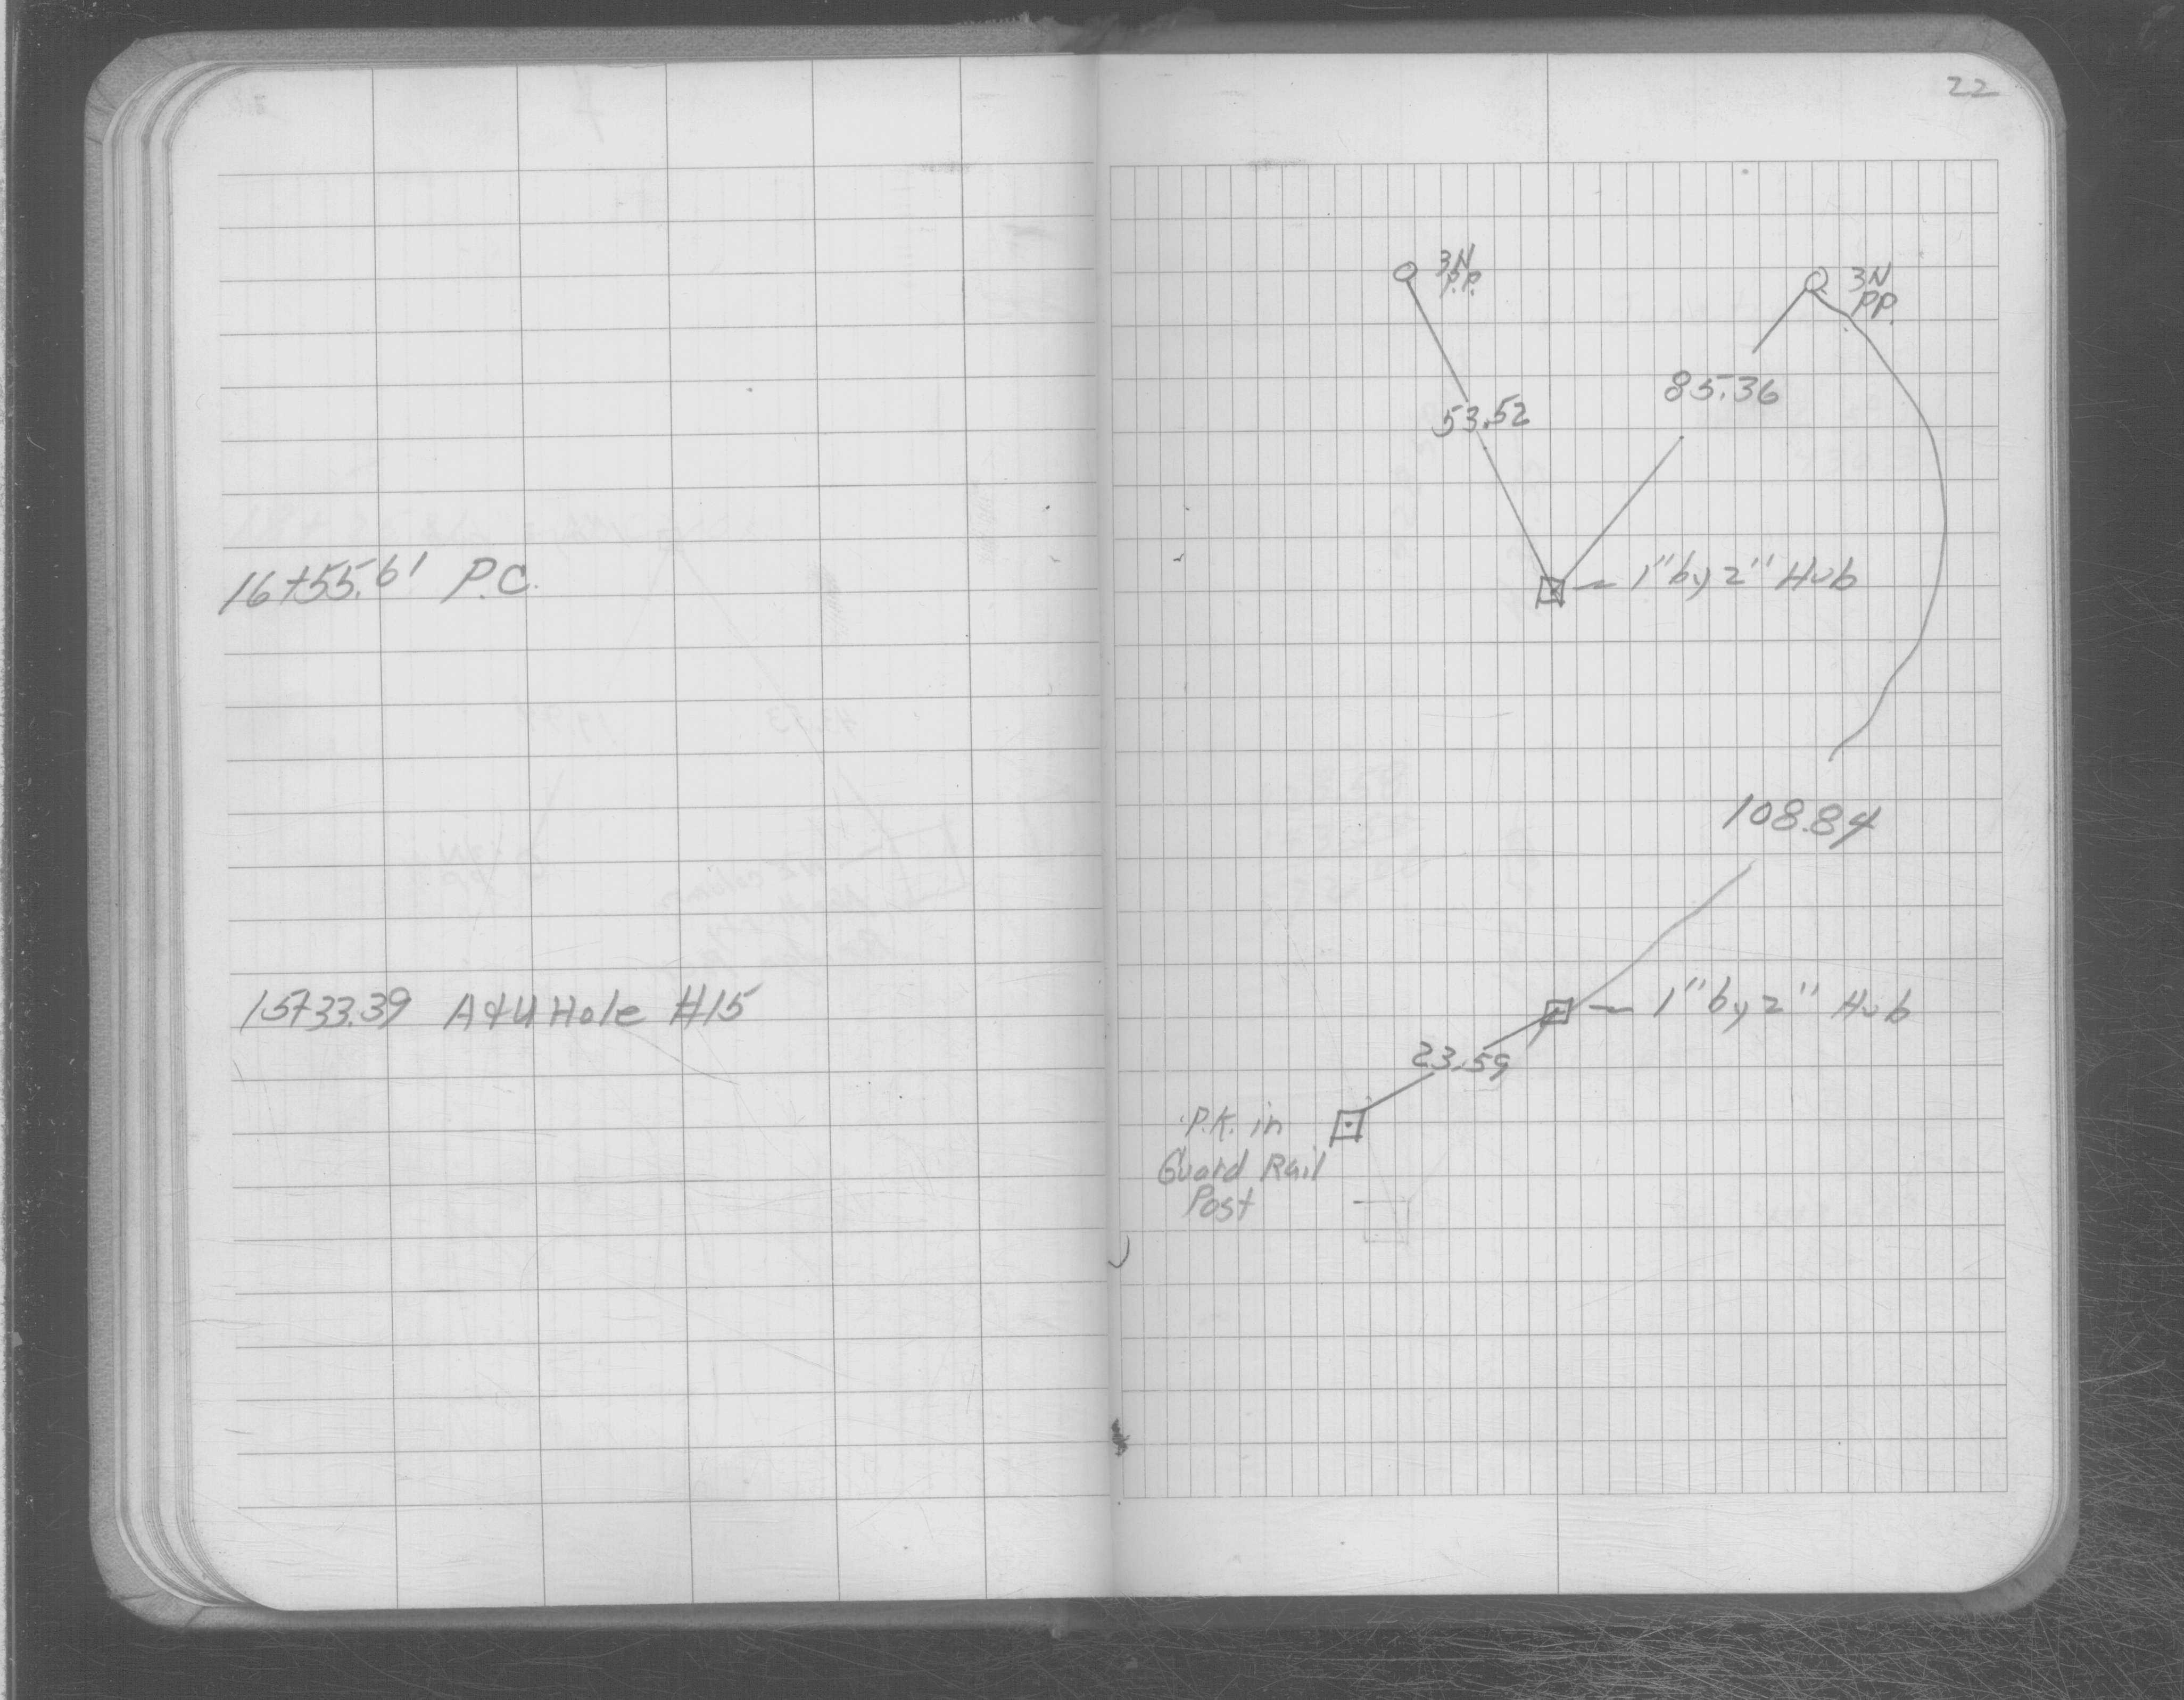 22
3N
P.P.
3N
P.P.
85.36
53.52
16+55.61 P.C.
1" by 2" Hub
108.84
15+33.39 A+U Hole #15
1" by 2" Hub
23.59
P.K. in
Guard Rail
Post